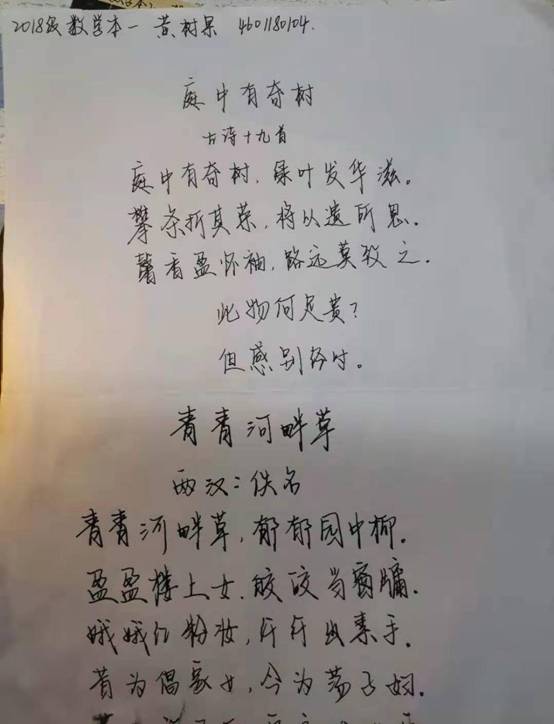 2018级数学本一 黄树果 4601180104.
庭中有奇树
古诗十九首
庭中有奇树，绿叶发华滋。
攀条折其荣，将以遗所思.
馨香盈怀袖，路远莫致之.
此物何足贵？
但感别经时。
青青河畔草
两汉：佚名
青青河畔草，郁郁园中柳.
盈盈楼上女.皎皎当窗牖.
娥娥红粉妆，纤纤出素手.
昔为倡家女，今为荡子妇.